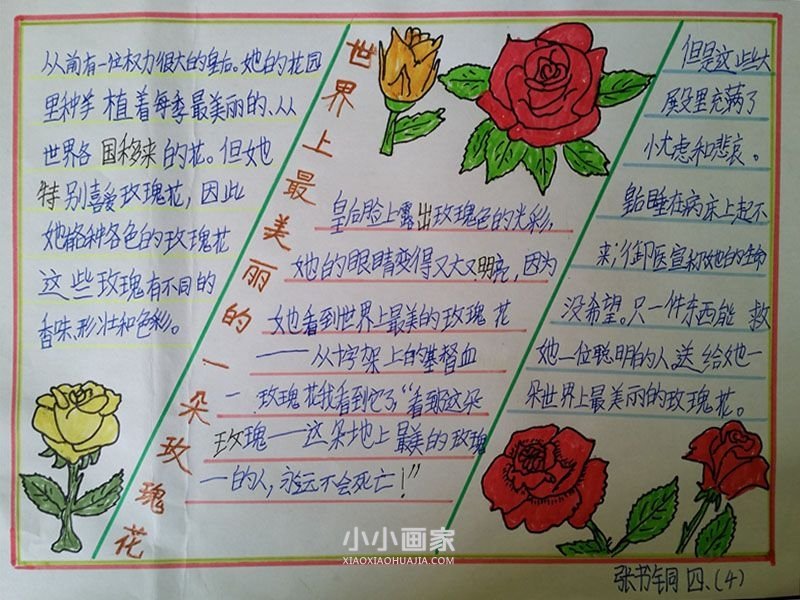 世界上最美丽的一朵玫瑰花
从前有一位权力很大的皇后。她的花园
里种羊植着每季最美丽的、从
世界各国移来的花。但她
特别喜爱玫瑰花，因此
她有各种各色的玫瑰花
这些玫瑰有不同的
香味、形壮和色彩。
但是这些大
殿没里充满了
忧虑和悲哀。
皇后睡在病床上起不
来，御医宣称她的生命
没希望。只一件东西能救
她一位聪明的人，送给她一
朵世界上最美丽的玫瑰花。
皇后脸上露出玫瑰色的光彩，
她的眼睛变得又大又明亮，因为
她看到世界上最美的玫瑰花
——从十字架上的基督血
一玫瑰花我看到它了“看到这朵
玫瑰——这朵地上最美的玫瑰
—的人，永远不会死亡！”
小小画家
XIAOXIAOHUAJIA.COM
张书铜 四、(4)